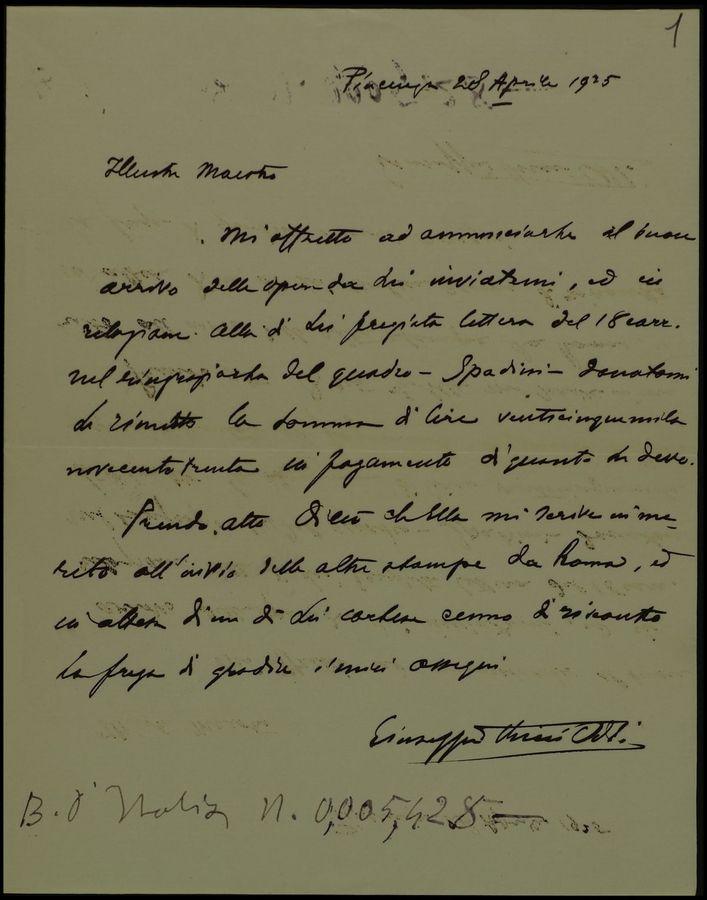 1
Piacenza 28 Aprile 1925
Illustre Maestro
Mi affretto ad annunciarle il buon
arrivo delle opere da Lei inviatemi, ed in
relazione alla di Lei pregiata lettera del 18 corr.
nel ringraziarla del quadro - Spadini - donatomi
Le rimetto la somma di lire venticinquemila
novecentotrenta in pagamento di quanto Le devo.
Prendo atto di ciò ch'Ella mi scrive in me-
rito all'invio delle altre stampe da Roma, ed
in attesa di un di Lei cortese cenno di riscontro
La prego di gradire i miei ossequi
Giuseppe Ricci Oddi
B. d'Italia N. 0,005,428 -